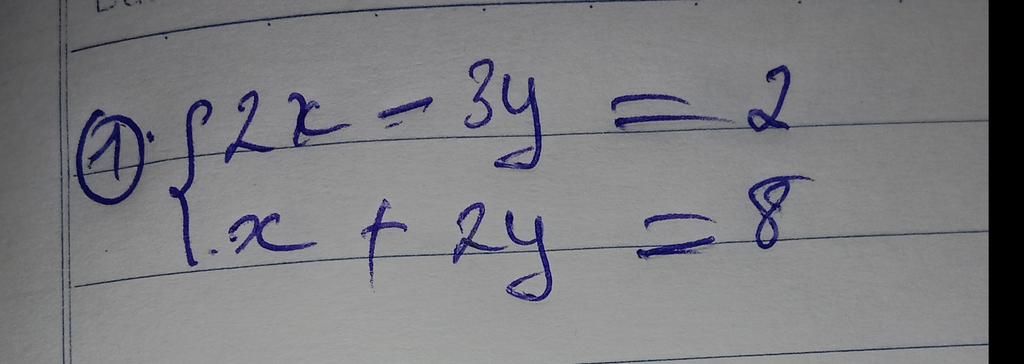 ① {2x - 3y = 2
x + 2y = 8